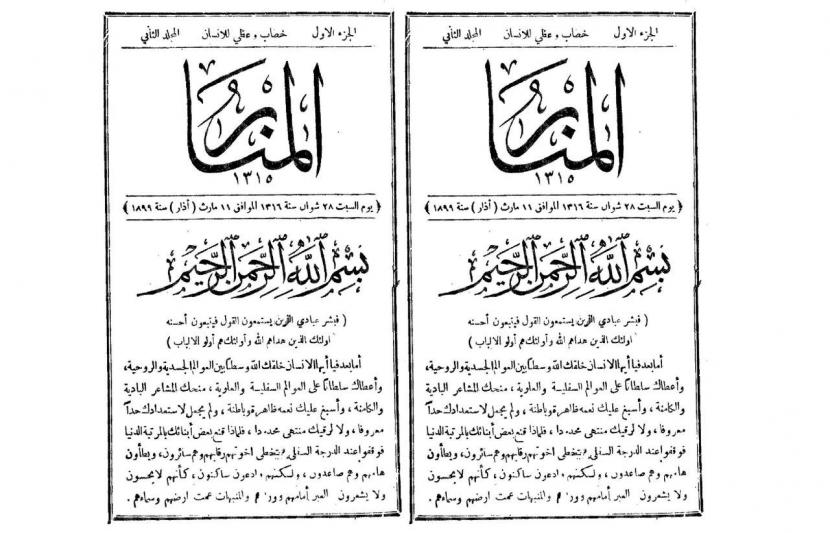 الجزء الاول خطاب و عقلي للانسان المجلد الثاني
المنار
١٣١٥
﴿ يوم السبت ٢٨ شوال سنة ١٣١٦ الموافق ١١ مارث ( آذار ) سنة ١٨٩٩ ﴾
بسم الله الرحمن الرحيم
( فبشر عبادي الذين يستمعون القول فيتبعون أحسنه
اولئك الذين هداهم الله وأولئك هم أولو الالباب )
أما بعد فيا أيها الانسان خلقك الله وسطا بين العوالم الجسدية والروحية،
وأعطاك سلطانا على العوالم السفلية والعلوية، منحك المشاعر البادية
والكامنة، وأسبغ عليك نعمه ظاهرة وباطنة، ولم يجعل لاستعدادك حدا
معروفا، ولا لرقيك منتهى محدودا، فلماذا قنع بعض أبنائك بالمرتبة الدنيا
فوقفوا عند الدرجة السفلى، يتخطى اخوتهم رقابهم وهم سائرون، ويطأون
هامهم وهم صاعدون، ولكنهم وادعون ساكنون، كأنهم لايحسون
ولا يشعرون العبر أمامهم وور م والمنبهات عمت ارضهم وسماءهم.
الجزء الاول خطاب و عقلي للانسان المجلد الثاني
المنار
١٣١٥
﴿ يوم السبت ٢٨ شوال سنة ١٣١٦ الموافق ١١ مارث ( آذار ) سنة ١٨٩٩ ﴾
بسم الله الرحمن الرحيم
( فبشر عبادي الذين يستمعون القول فيتبعون أحسنه
اولئك الذين هداهم الله وأولئك هم أولو الالباب )
أما بعد فيا أيها الانسان خلقك الله وسطا بين العوالم الجسدية والروحية،
وأعطاك سلطانا على العوالم السفلية والعلوية، منحك المشاعر البادية
والكامنة، وأسبغ عليك نعمه ظاهرة وباطنة، ولم يجعل لاستعدادك حدا
معروفا، ولا لرقيك منتهى محدودا، فلماذا قنع بعض أبنائك بالمرتبة الدنيا
فوقفوا عند الدرجة السفلى، يتخطى اخوتهم رقابهم وهم سائرون، ويطأون
هامهم وهم صاعدون، ولكنهم وادعون ساكنون، كأنهم لايحسون
ولا يشعرون العبر أمامهم وور م والمنبهات عمت ارضهم وسماءهم.